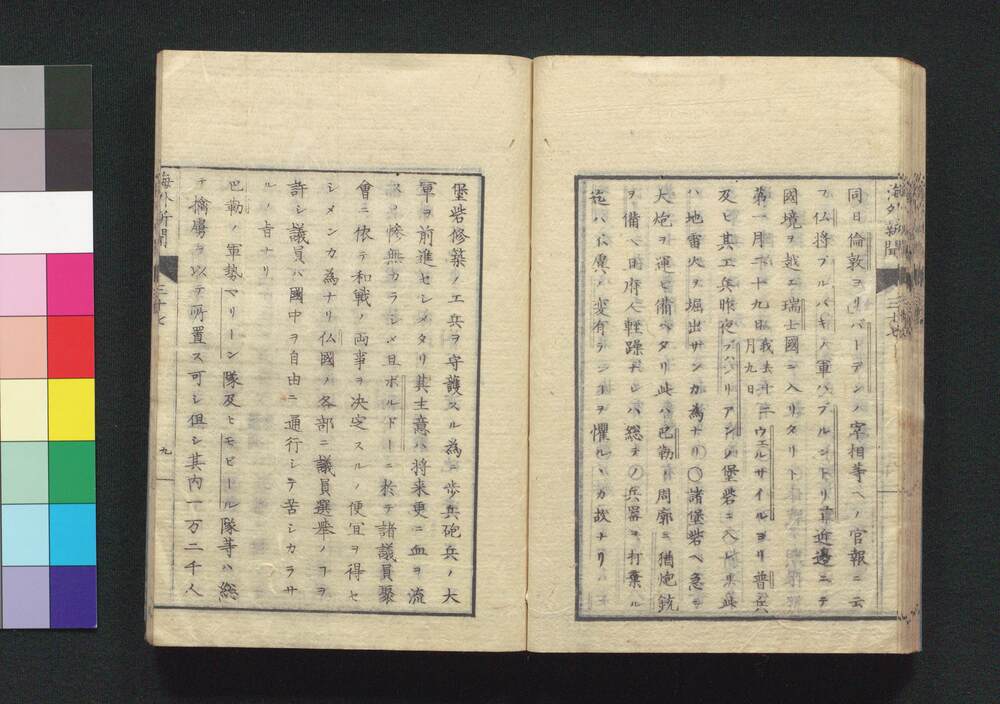 同日倫敦ヨリバートアンハ宰相等ヘノ官報ニ云
フ仏将ブルバキノ軍ハブルントリ 近邉ニテ
國境ヲ越エ瑞士國ニ入リタリト
第一月二十九日我去十二月九日ウエルサイルヨリ普兵
及ヒ其工兵昨夜 アンノ堡砦ニ入 此
ハ地雷火ヲ堀出サンカ為ナリ○諸堡砦ヘ急ニ
大炮ヲ運ヒ備ヘタリ此ハ巴勒ノ周廓ニ猶炮銃
ヲ備ヘ日府人軽躁ナレハ総テノ兵器ヲ打棄ル
迄ハ不慮ノ変有ランヿヲ懼ルヽカ故ナリ
海外新聞 三十七
堡砦修築ノ工兵ヲ守護スル為ニ歩兵砲兵ノ大
軍ヲ前進セシメタリ其主意ハ将来更ニ血ヲ流
スノ惨無カラシメ且ボルドーニ於テ諸議員聚
會ニ依テ和戦ノ両事ヲ决定スルノ便宜ヲ得セ
シメンカ為ナリ仏國ノ各部ニ議員選挙ノヿヲ
許シ議員ハ國中ヲ自由ニ通行シテ苦シカラサ
ルノ旨ナリ
巴勒ノ軍勢マリーン隊及ヒモビール隊等ハ総
テ擒虜ヲ以テ所置ス可シ但シ其内一万二千人
海外新聞 三十七 九